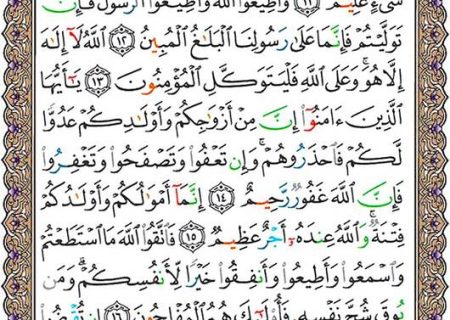 شَىْءٍ عَلِيمٌ ۝١١ وَأَطِيعُوا۟ ٱللَّهَ وَأَطِيعُوا۟ ٱلرَّسُولَ فَإِن
تَوَلَّيْتُمْ فَإِنَّمَا عَلَىٰ رَسُولِنَا ٱلْبَلَـٰغُ ٱلْمُبِينُ ۝١٢ ٱللَّهُ لَآ إِلَـٰهَ
إِلَّا هُوَ ۚ وَعَلَى ٱللَّهِ فَلْيَتَوَكَّلِ ٱلْمُؤْمِنُونَ ۝١٣ يَـٰٓأَيُّهَا
ٱلَّذِينَ ءَامَنُوٓا۟ إِنَّ مِنْ أَزْوَٰجِكُمْ وَأَوْلَـٰدِكُمْ عَدُوًّا
لَّكُمْ فَٱحْذَرُوهُمْ ۚ وَإِن تَعْفُوا۟ وَتَصْفَحُوا۟ وَتَغْفِرُوا۟
فَإِنَّ ٱللَّهَ غَفُورٌ رَّحِيمٌ ۝١٤ إِنَّمَآ أَمْوَٰلُكُمْ وَأَوْلَـٰدُكُمْ
فِتْنَةٌ ۚ وَٱللَّهُ عِندَهُۥٓ أَجْرٌ عَظِيمٌ ۝١٥ فَٱتَّقُوا۟ ٱللَّهَ مَا ٱسْتَطَعْتُمْ
وَٱسْمَعُوا۟ وَأَطِيعُوا۟ وَأَنفِقُوا۟ خَيْرًا لِّأَنفُسِكُمْ ۗ وَمَن
يُوقَ شُحَّ نَفْسِهِۦ فَأُو۟لَـٰٓئِكَ هُمُ ٱلْمُفْلِحُونَ ۝١٦ إِن تُقْرِضُوا۟